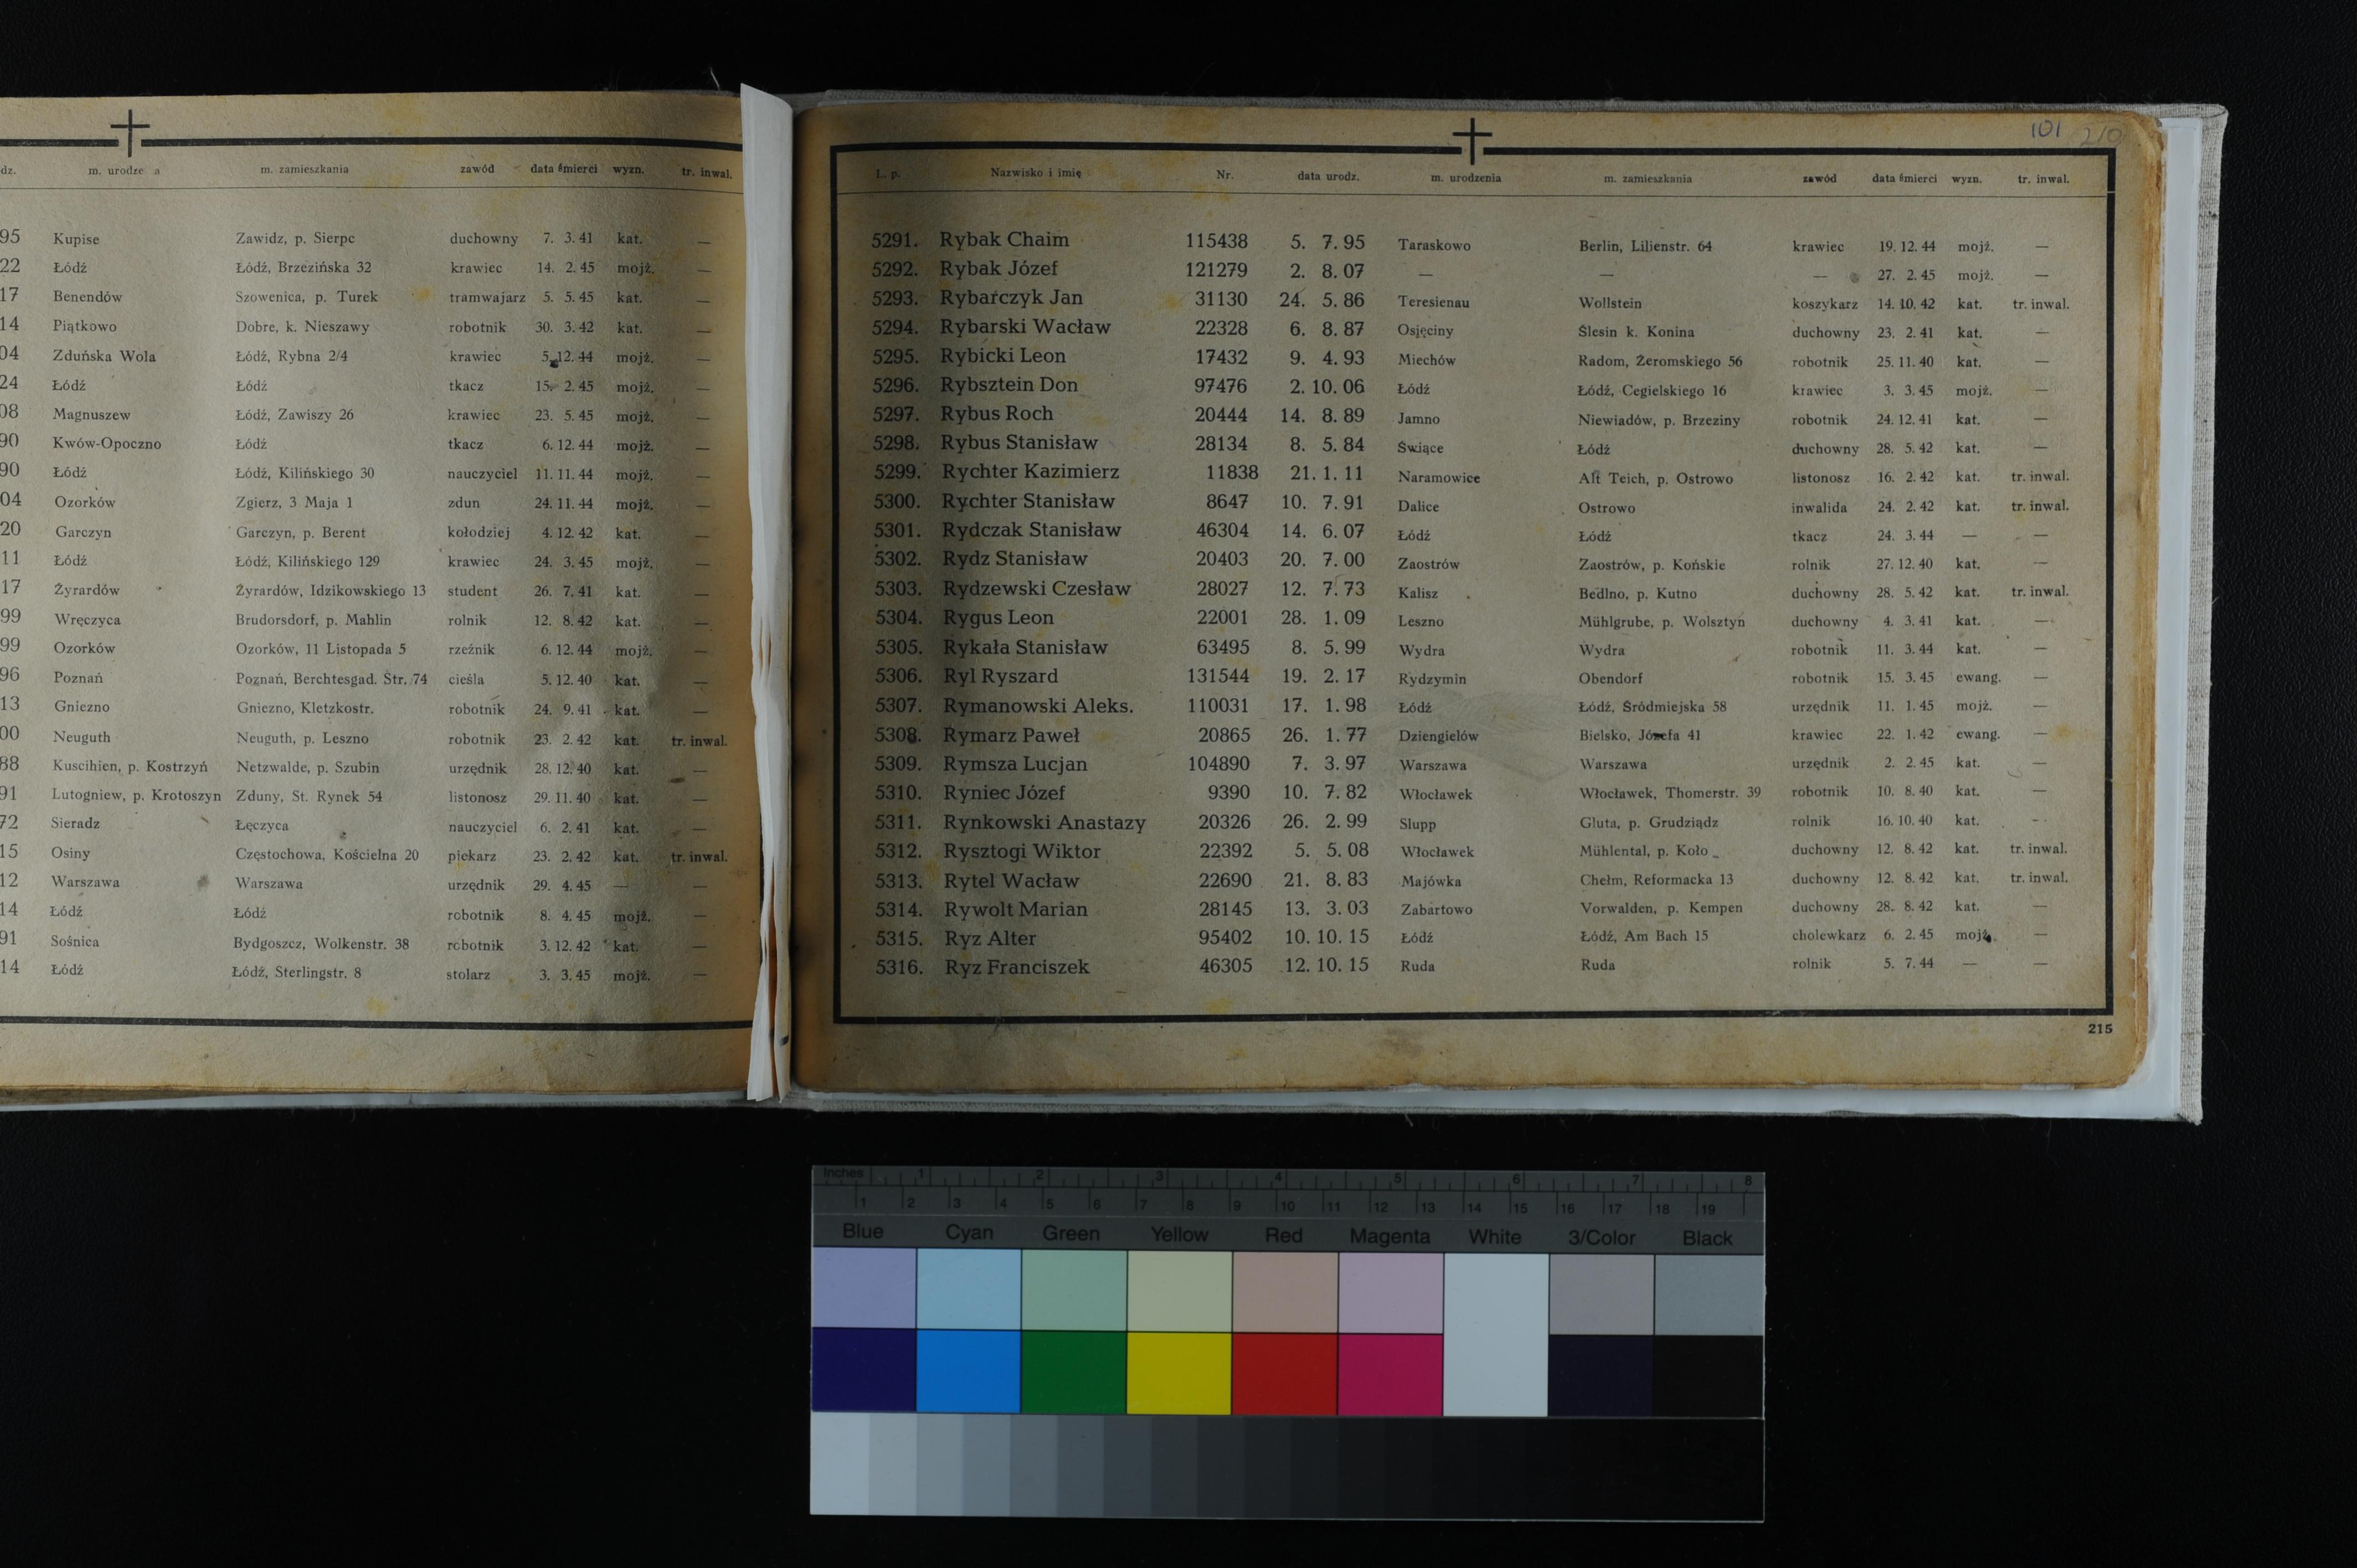 dz. m. urodze a m. zamieszkania zawód data śmierci wyzn. tr. inwal.
95 Kupise Zawidz, p. Sierpc duchowny 7. 3. 41 kat. —
22 Łódź Łódź, Brzezińska 32 krawiec 14. 2. 45 mojż. —
17 Benendów Szowenica, p. Turek tramwajarz 5. 5. 45 kat. —
14 Piątkowo Dobre, k. Nieszawy robotnik 30. 3. 42 kat. —
04 Zduńska Wola Łódź, Rybna 2/4 krawiec 5. 12. 44 mojż. —
24 Łódź Łódź tkacz 15. 2. 45 mojż. —
08 Magnuszew Łódź, Zawiszy 26 krawiec 23. 5. 45 mojż. —
90 Kwów-Opoczno Łódź tkacz 6. 12. 44 mojż. —
90 Łódź Łódź, Kilińskiego 30 nauczyciel 11. 11. 44 mojż. —
04 Ozorków Zgierz, 3 Maja 1 zdun 24. 11. 44 mojż. —
20 Garczyn Garczyn, p. Berent kołodziej 4. 12. 42 kat. —
11 Łódź Łódź, Kilińskiego 129 krawiec 24. 3. 45 mojż. —
17 Żyrardów Żyrardów, Idzikowskiego 13 student 26. 7. 41 kat. —
99 Wręczyca Brudorsdorf, p. Mahlin rolnik 12. 8. 42 kat. —
99 Ozorków Ozorków, 11 Listopada 5 rzeźnik 6. 12. 44 mojż. —
96 Poznań Poznań, Berchtesgad. Str. 74 cieśla 5. 12. 40 kat. —
13 Gniezno Gniezno, Kletzkostr. robotnik 24. 9. 41 kat. —
00 Neuguth Neuguth, p. Leszno robotnik 23. 2. 42 kat. tr. inwal.
88 Kuscihien, p. Kostrzyń Netzwalde, p. Szubin urzędnik 28. 12. 40 kat. —
91 Lutogniew, p. Krotoszyn Zduny, St. Rynek 54 listonosz 29. 11. 40 kat. —
72 Sieradz Łęczyca nauczyciel 6. 2. 41 kat. —
15 Osiny Częstochowa, Kościelna 20 piekarz 23. 2. 42 kat. tr. inwal.
12 Warszawa Warszawa urzędnik 29. 4. 45 — —
14 Łódź Łódź robotnik 8. 4. 45 mojż. —
91 Sośnica Bydgoszcz, Wolkenstr. 38 robotnik 3. 12. 42 kat. —
14 Łódź Łódź, Sterlingstr. 8 stolarz 3. 3. 45 mojż. —
101 210
L. p. Nazwisko i imię Nr. data urodz. m. urodzenia m. zamieszkania zawód data śmierci wyzn. tr. inwal.
5291. Rybak Chaim 115438 5. 7. 95 Taraskowo Berlin, Lilienstr. 64 krawiec 19. 12. 44 mojż. —
5292. Rybak Józef 121279 2. 8. 07 — — — 27. 2. 45 mojż. —
5293. Rybarczyk Jan 31130 24. 5. 86 Teresienau Wollstein koszykarz 14. 10. 42 kat. tr. inwal.
5294. Rybarski Wacław 22328 6. 8. 87 Osięciny Ślesin k. Konina duchowny 23. 2. 41 kat. —
5295. Rybicki Leon 17432 9. 4. 93 Miechów Radom, Żeromskiego 56 robotnik 25. 11. 40 kat. —
5296. Rybsztein Don 97476 2. 10. 06 Łódź Łódź, Cegielskiego 16 krawiec 3. 3. 45 mojż. —
5297. Rybus Roch 20444 14. 8. 89 Jamno Niewiadów, p. Brzeziny robotnik 24. 12. 41 kat. —
5298. Rybus Stanisław 28134 8. 5. 84 Świące Łódź duchowny 28. 5. 42 kat. —
5299. Rychter Kazimierz 11838 21. 1. 11 Naramowice Alt Teich, p. Ostrowo listonosz 16. 2. 42 kat. tr. inwal.
5300. Rychter Stanisław 8647 10. 7. 91 Dalice Ostrowo inwalida 24. 2. 42 kat. tr. inwal.
5301. Rydczak Stanisław 46304 14. 6. 07 Łódź Łódź tkacz 24. 3. 44 — —
5302. Rydz Stanisław 20403 20. 7. 00 Zaostrów Zaostrów, p. Końskie rolnik 27. 12. 40 kat. —
5303. Rydzewski Czesław 28027 12. 7. 73 Kalisz Bedlno, p. Kutno duchowny 28. 5. 42 kat. tr. inwal.
5304. Rygus Leon 22001 28. 1. 09 Leszno Mühlgrube, p. Wolsztyn duchowny 4. 3. 41 kat. —
5305. Rykała Stanisław 63495 8. 5. 99 Wydra Wydra robotnik 11. 3. 44 kat. —
5306. Ryl Ryszard 131544 19. 2. 17 Rydzymin Obendorf robotnik 15. 3. 45 ewang. —
5307. Rymanowski Aleks. 110031 17. 1. 98 Łódź Łódź, Śródmiejska 58 urzędnik 11. 1. 45 mojż. —
5308. Rymarz Paweł 20865 26. 1. 77 Dziengielów Bielsko, Józefa 41 krawiec 22. 1. 42 ewang. —
5309. Rymsza Lucjan 104890 7. 3. 97 Warszawa Warszawa urzędnik 2. 2. 45 kat. —
5310. Ryniec Józef 9390 10. 7. 82 Włocławek Włocławek, Thomerstr. 39 robotnik 10. 8. 40 kat. —
5311. Rynkowski Anastazy 20326 26. 2. 99 Slupp Gluta, p. Grudziądz rolnik 16. 10. 40 kat. —
5312. Rysztogi Wiktor 22392 5. 5. 08 Włocławek Mühlental, p. Koło duchowny 12. 8. 42 kat. tr. inwal.
5313. Rytel Wacław 22690 21. 8. 83 Majówka Chełm, Reformacka 13 duchowny 12. 8. 42 kat. tr. inwal.
5314. Rywolt Marian 28145 13. 3. 03 Zabartowo Vorwalden, p. Kempen duchowny 28. 8. 42 kat. —
5315. Ryz Alter 95402 10. 10. 15 Łódź Łódź, Am Bach 15 cholewkarz 6. 2. 45 mojż. —
5316. Ryz Franciszek 46305 12. 10. 15 Ruda Ruda rolnik 5. 7. 44 — —
215
Inches 1 2 3 4 5 6 7 8
1 2 3 4 5 6 7 8 9 10 11 12 13 14 15 16 17 18 19
Blue Cyan Green Yellow Red Magenta White 3/Color Black